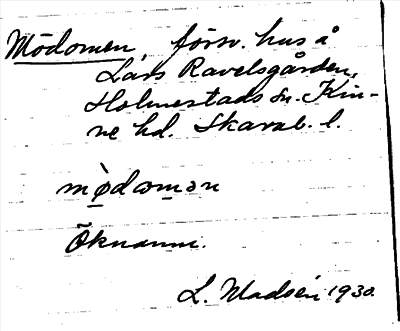 Mödomen, försv. hus å
Lars Ravelsgården,
Holmestads sn. Kin-
ne hd. Skarab. l.
mø̀doman
Öknamn.
L. Madsén 1930.